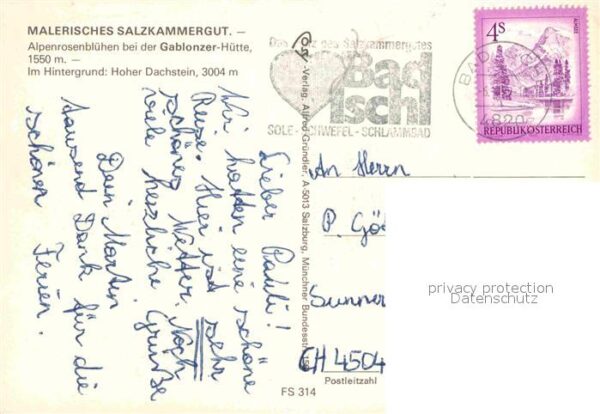 MALERISCHES SALZKAMMERGUT. —
Alpenrosenblühen bei der Gablonzer-Hütte,
1550 m. —
Im Hintergrund: Hoher Dachstein, 3004 m
Das Herz des Salzkammergutes
Bad
Ischl
SOLE - SCHWEFEL - SCHLAMMBAD
4S
ALMSEE
REPUBLIK ÖSTERREICH
BAD ISCHL
4820
Lieber Pauli!
Wir hatten eine schöne
Reise. Hier ist sehr
schönes Wetter. Noch
viele herzliche Grüße
Dein Martin
tausend Dank für die
schönen Ferien.
Verlag Alfred Gründler, A-5013 Salzburg, Münchner Bundesstr
An Herrn
P. Gö
Sunner
CH 4504
Postleitzahl
FS 314
privacy protection
Datenschutz